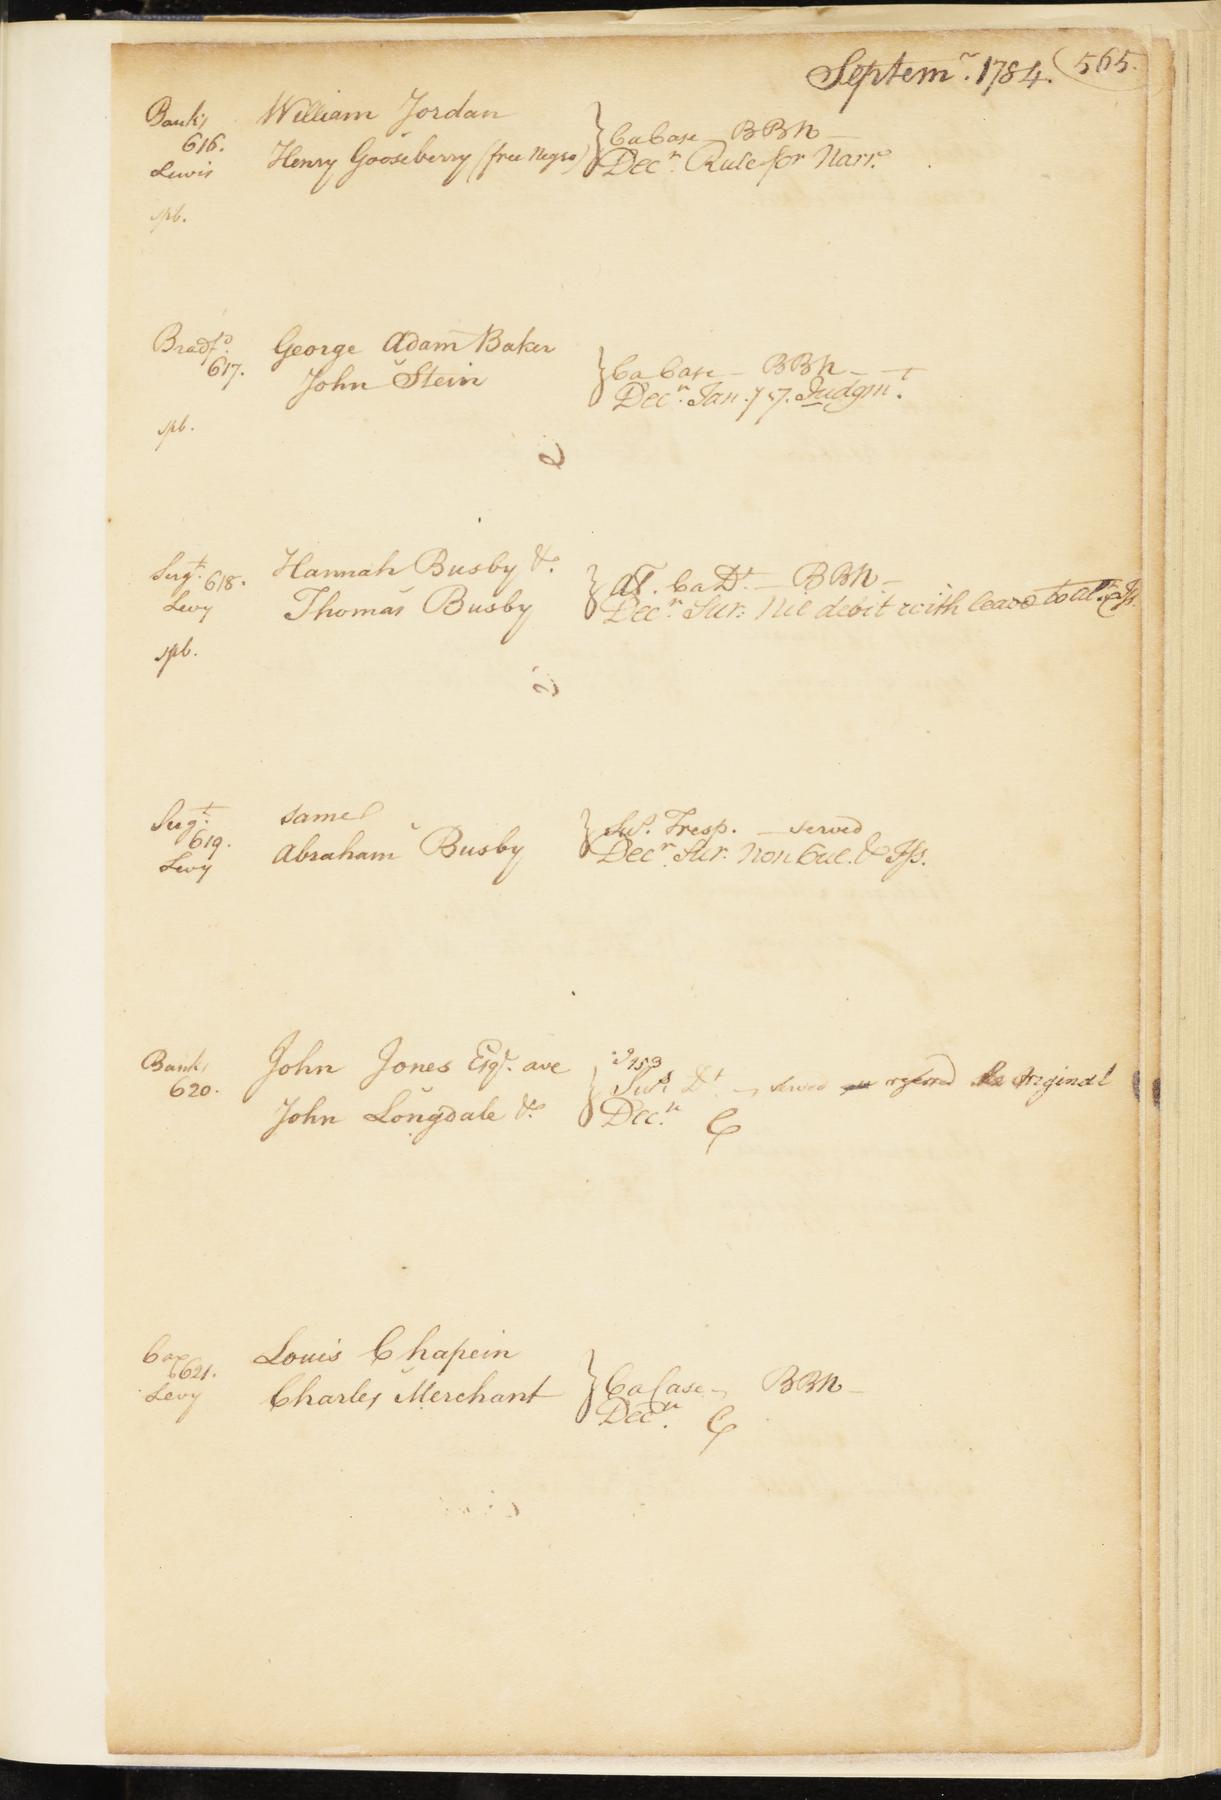 Septemr. 1784. 565.
Banks William Jordan
616. Ca Case — BBN —
Lewis Henry Gooseberry (free Negro) Decr. Rule for Narr.
spb.
Bradfd. George Adam Baker
617. John Stein Ca Case — BBN —
Decr. Jan. 7 Judgmt.
spb.
Sergt. 618. Hannah Busby &c. at. Ca Dt. — BBN —
Levy Thomas Busby Decr. Sur: Nil debit with leave to alt. & Iss.
spb.
Sergt. same
619. Sus. Tresp. — served
Levy Abraham Busby Decr. Sur. Non Cul. & Iss.
Banks John Jones Esqr. ave
620. Sus. Dt — served referred Original
John Longdale &c. Decr.
Cox Louis Chapein
621. Ca Case — BBN —
Levy Charles Merchant Decr.